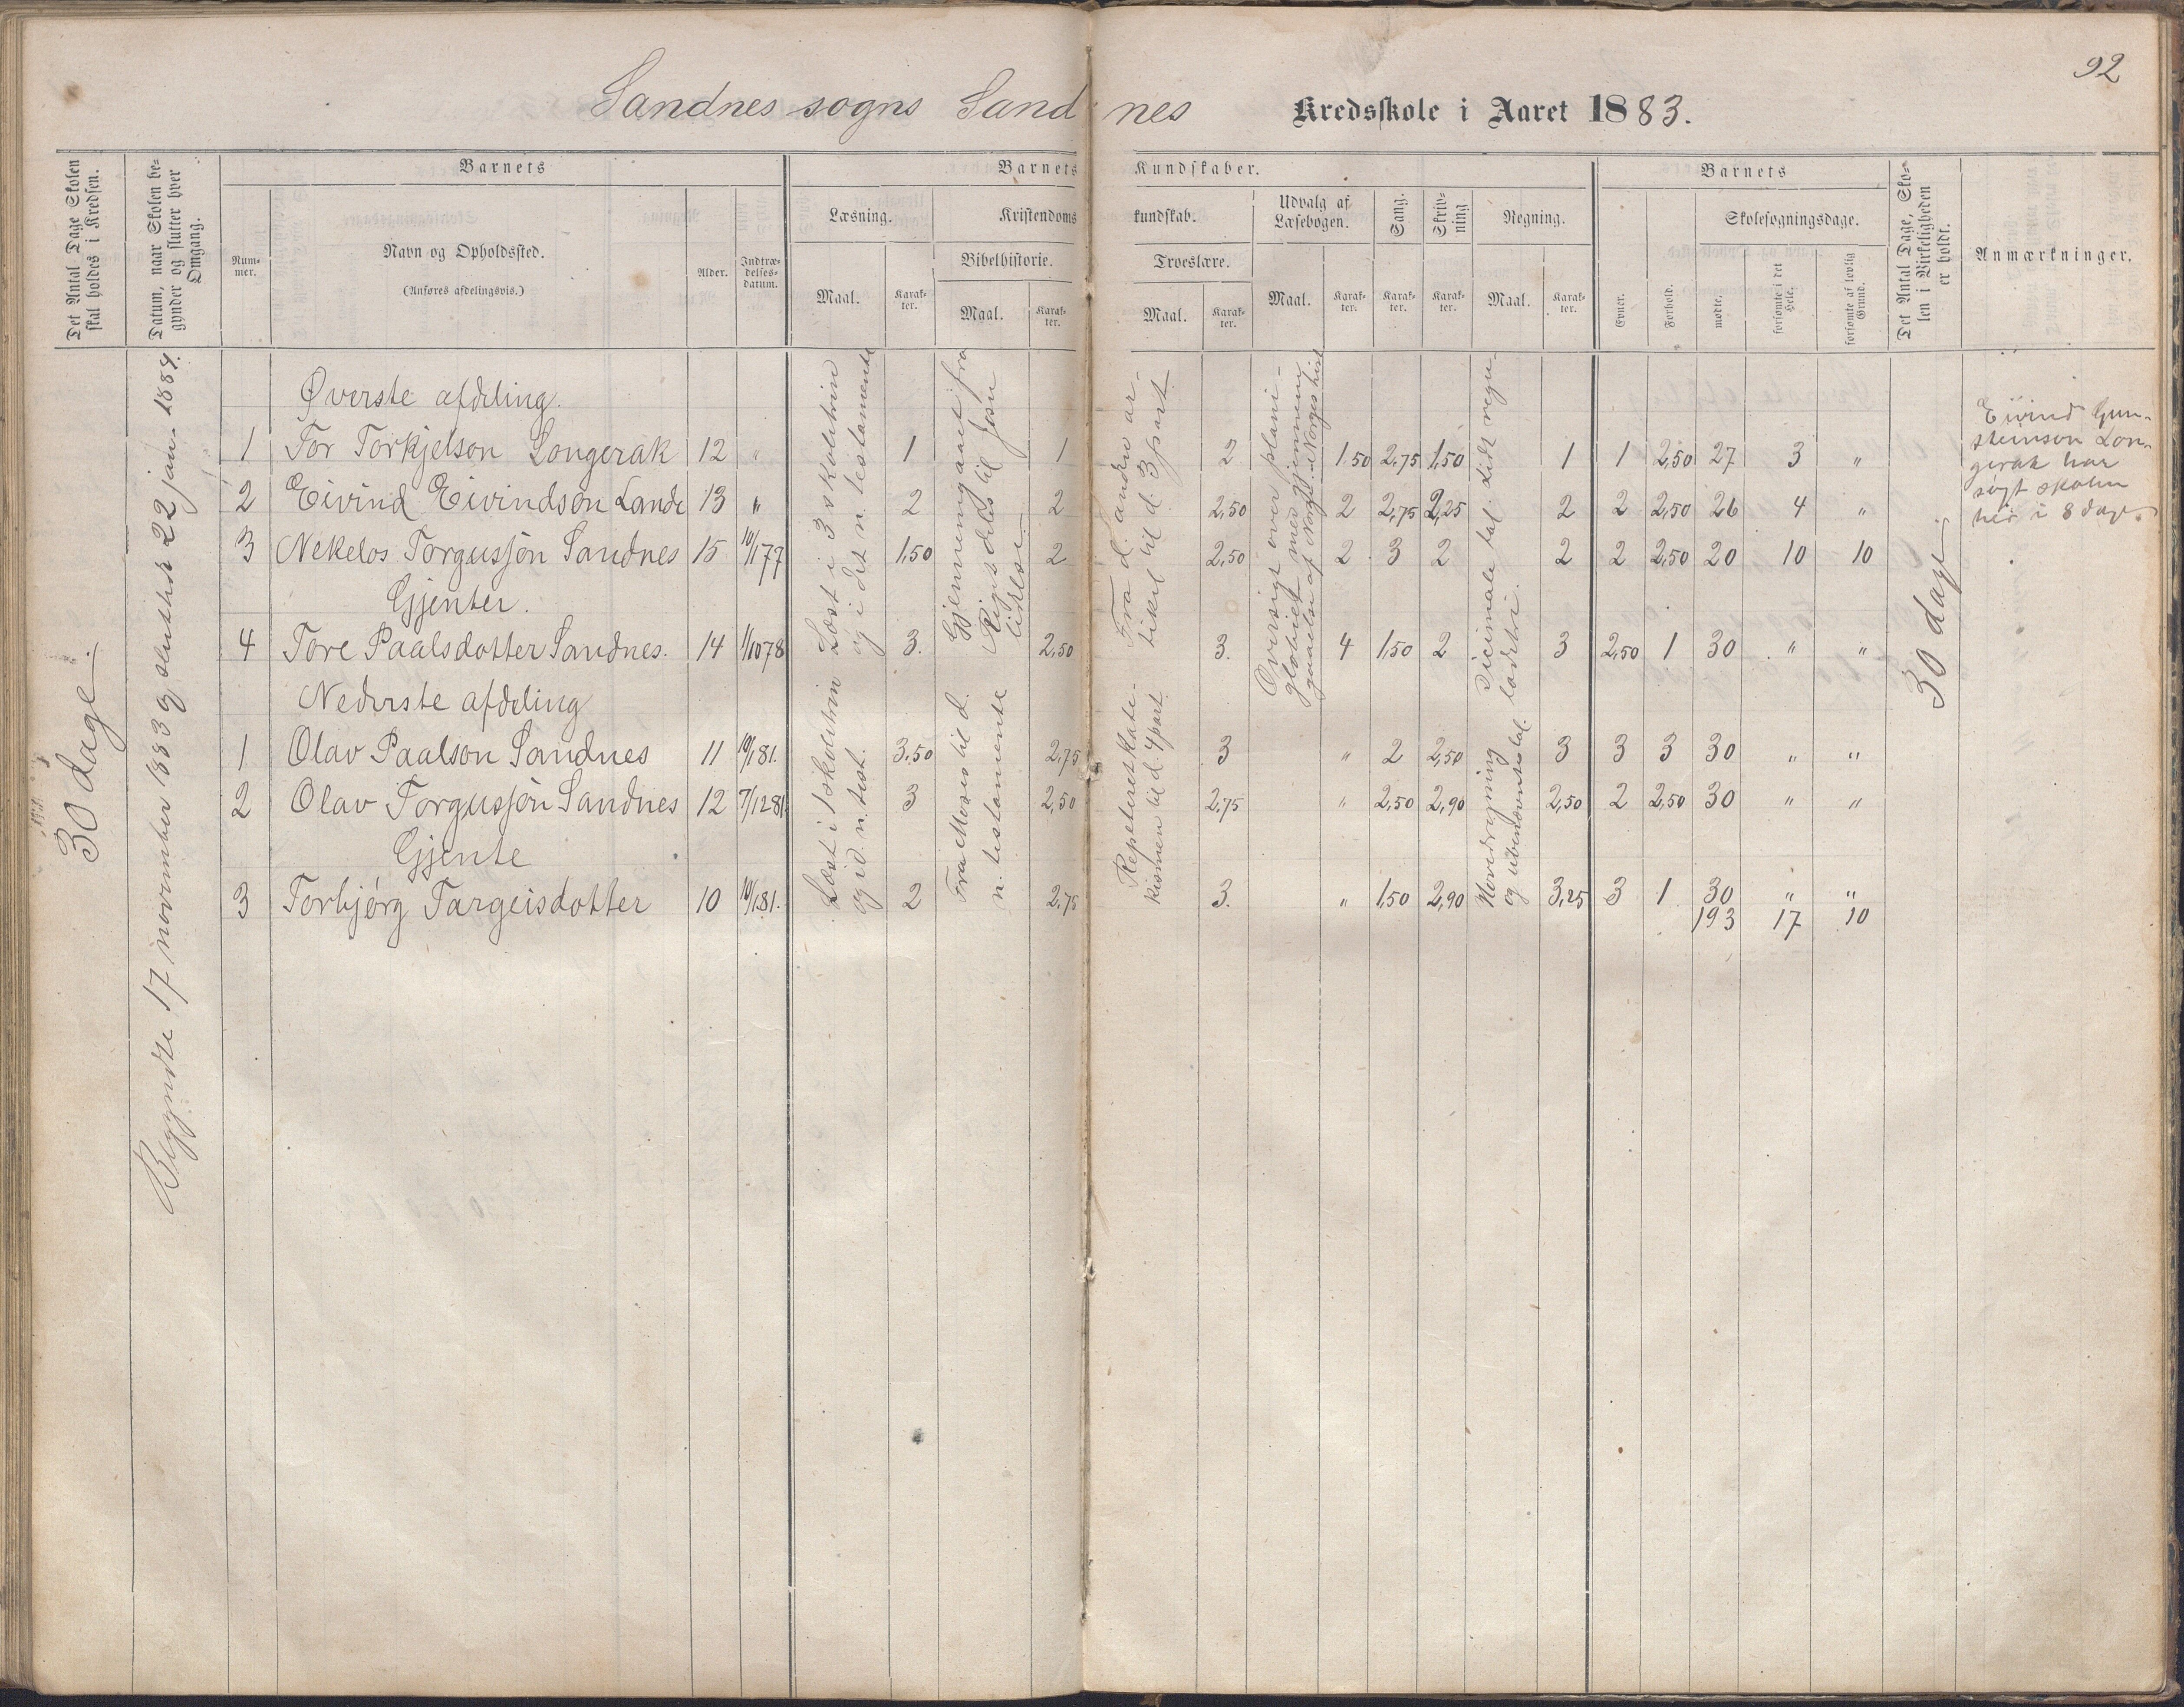 92
Sandnes sogns Sandnes Kredsskole i Aaret 1883.
Det Antal Dage Skolen skal holdes i Kredsen.
Datum, naar Skolen begynder og slutter hver Omgang.
Barnets
Nummer.
Navn og Opholdssted.
(Anføres afdelingsvis.)
Alder.
Indtrædelses-datum.
Barnets Kundskaber.
Læsning.
Maal.
Karakter.
Kristendomskundskab.
Bibelhistorie.
Maal.
Karakter.
Troeslære.
Maal.
Karakter.
Udvalg af Læsebogen.
Maal.
Karakter.
Sang.
Karakter.
Skrivning
Karakter.
Regning.
Maal.
Karakter.
Barnets
Evner.
Forhold.
Skolesøgningsdage.
mødte.
forsømte i det Hele.
forsømte af lovlig Grund.
Det Antal Dage, Skolen i Virkeligheden er holdt.
Anmærkninger.
30 dage.
Begyndte 17 november 1883 og sluttet 22 jan. 1884.
Øverste afdeling.
1 Tor Torkjelson Longerak 12 " 1 1 2 1.50 2,75 1,50 1 1 2,50 27 3 "
2 Eivind Eivindson Lande 13 " 2 2 2,50 2 2,75 2,25 2 2 2,50 26 4 "
3 Nekelos Torgusjøn Sandnes 15 10/1 77 1,50 2 2,50 2 3 2 2 2 2,50 20 10 10
Gjenter.
4 Tore Paalsdotter Sandnes. 14 1/10 78 3. 2,50 3. 4 1,50 2 3 2,50 1 30 " "
Nederste afdeling
1 Olav Paalson Sandnes 11 10/1 81. 3,50 2,75 3 " 2 2,50 3 3 3 30 " "
2 Olav Torgusjøn Sandnes 12 7/12 81. 3 2,50 2,75 " 2,50 2,90 2,50 2 2,50 30 " "
Gjente
3 Torbjørg Targeisdotter 10 10/1 81. 2 2,75 3. " 1,50 2,90 3,25 3 1 30 " "
193 17 10
Læst i 3 skoletrin
og i det n. testamente
Gjennemgaaet fra
Rigets deling til Jesu
lidelse.
Fra d. anden ar-
tikel til d. 3 part.
Oversigt over plani-
globiet med gjennem-
gaaelse af Norge. Norges hist
Decimale tal. Lidt regu-
ladetri.
Læst i 1 skoletrin
og i d. n. test.
Fra Moses til d.
n. testamente
Repeteret kate-
kismen til d. 4 part.
Hovedregning
og ubenævnte tal.
30 dage
Eivind Gun-
steinson Lon-
gerak har
søgt skolen
her i 8 dage.